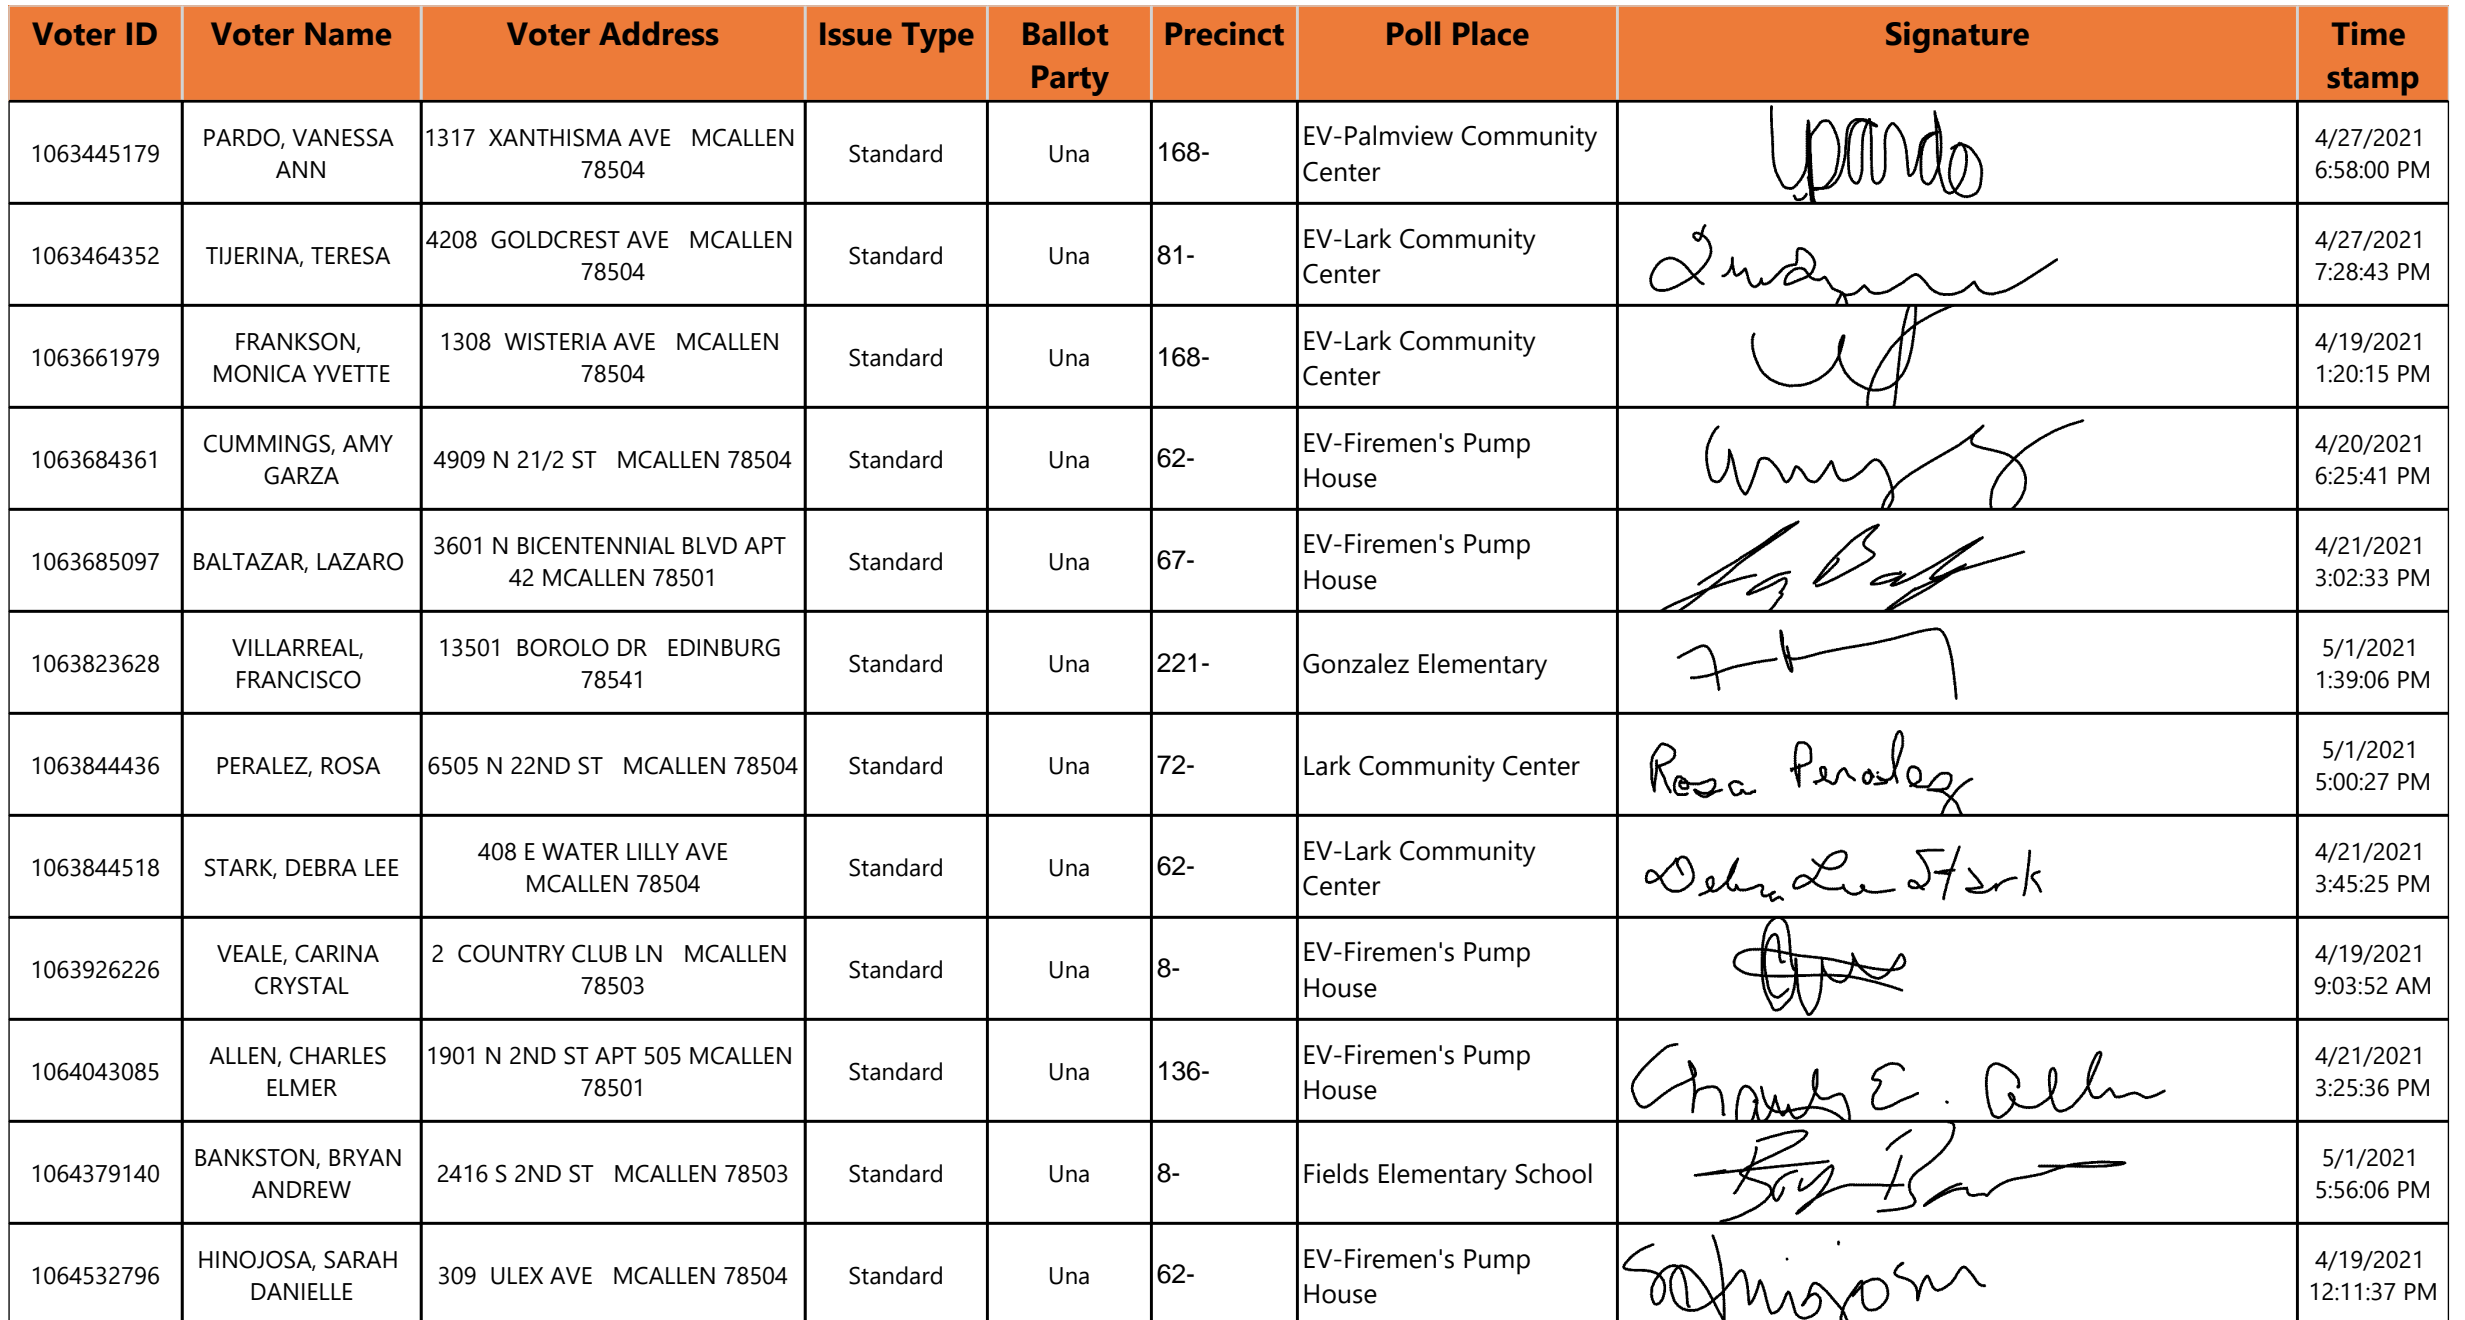 Voter ID Voter Name Voter Address Issue Type Ballot Party Precinct Poll Place Signature Time stamp
1063445179 PARDO, VANESSA ANN 1317 XANTHISMA AVE MCALLEN 78504 Standard Una 168- EV-Palmview Community Center 4/27/2021 6:58:00 PM
1063464352 TIJERINA, TERESA 4208 GOLDCREST AVE MCALLEN 78504 Standard Una 81- EV-Lark Community Center 4/27/2021 7:28:43 PM
1063661979 FRANKSON, MONICA YVETTE 1308 WISTERIA AVE MCALLEN 78504 Standard Una 168- EV-Lark Community Center 4/19/2021 1:20:15 PM
1063684361 CUMMINGS, AMY GARZA 4909 N 21/2 ST MCALLEN 78504 Standard Una 62- EV-Firemen's Pump House 4/20/2021 6:25:41 PM
1063685097 BALTAZAR, LAZARO 3601 N BICENTENNIAL BLVD APT 42 MCALLEN 78501 Standard Una 67- EV-Firemen's Pump House 4/21/2021 3:02:33 PM
1063823628 VILLARREAL, FRANCISCO 13501 BOROLO DR EDINBURG 78541 Standard Una 221- Gonzalez Elementary 5/1/2021 1:39:06 PM
1063844436 PERALEZ, ROSA 6505 N 22ND ST MCALLEN 78504 Standard Una 72- Lark Community Center Rosa Peralez 5/1/2021 5:00:27 PM
1063844518 STARK, DEBRA LEE 408 E WATER LILLY AVE MCALLEN 78504 Standard Una 62- EV-Lark Community Center Debra Lee Stark 4/21/2021 3:45:25 PM
1063926226 VEALE, CARINA CRYSTAL 2 COUNTRY CLUB LN MCALLEN 78503 Standard Una 8- EV-Firemen's Pump House 4/19/2021 9:03:52 AM
1064043085 ALLEN, CHARLES ELMER 1901 N 2ND ST APT 505 MCALLEN 78501 Standard Una 136- EV-Firemen's Pump House Charles E. Allen 4/21/2021 3:25:36 PM
1064379140 BANKSTON, BRYAN ANDREW 2416 S 2ND ST MCALLEN 78503 Standard Una 8- Fields Elementary School 5/1/2021 5:56:06 PM
1064532796 HINOJOSA, SARAH DANIELLE 309 ULEX AVE MCALLEN 78504 Standard Una 62- EV-Firemen's Pump House 4/19/2021 12:11:37 PM